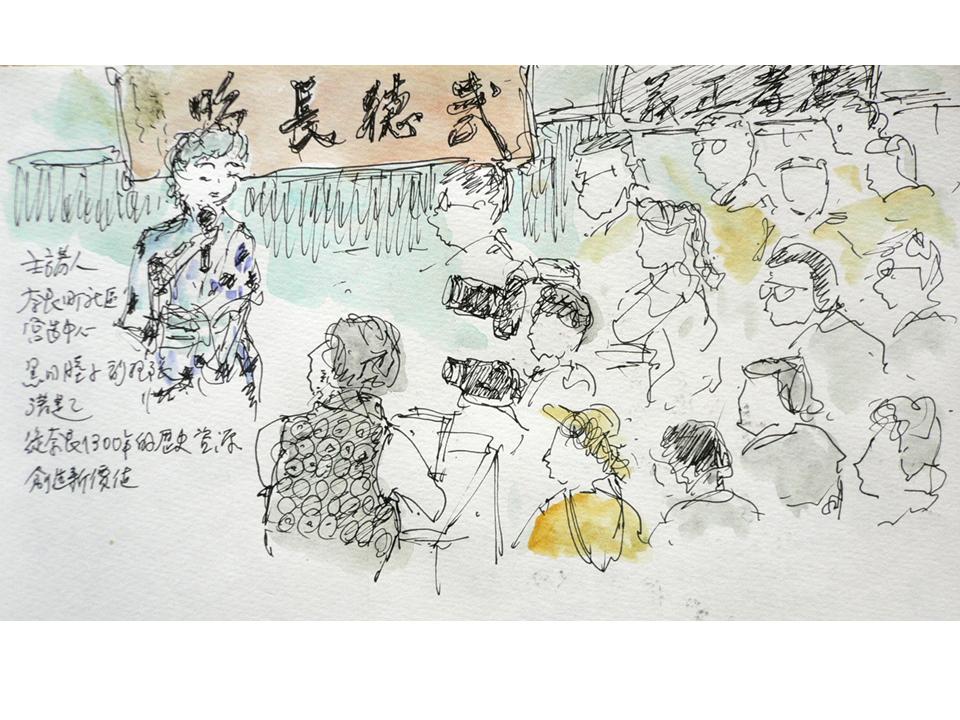 武德長昭
孝正義
主講人
奈良町社區
營造中心
黑田睦子副理事長
講題
從奈良1300年的歷史資源
創造新價值